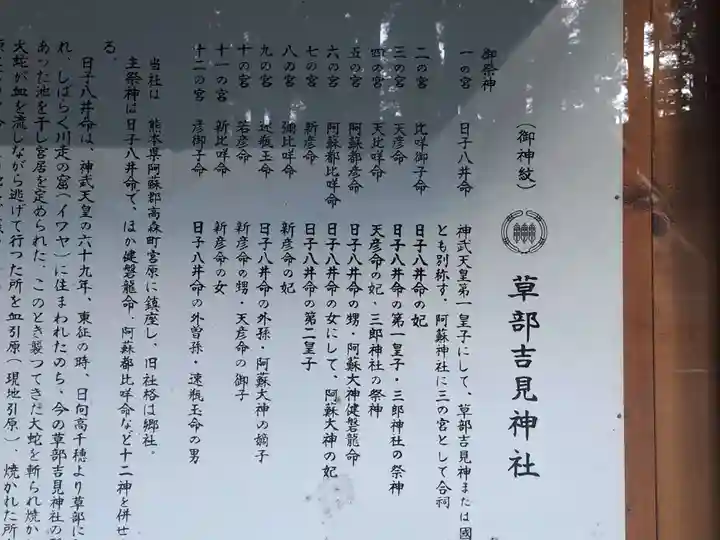 草部吉見神社
(御神紋)
御祭神
一の宮 日子八井命 神武天皇第一皇子にして、草部吉見神または國
とも別称す、阿蘇神社に三の宮として合祠
二の宮 比咩御子命 日子八井命の妃
三の宮 天彦命 日子八井命の第一皇子・三郎神社の祭神
四の宮 天比咩命 天彦命の妃・三郎神社の祭神
五の宮 阿蘇都彦命 日子八井命の甥・阿蘇大神健磐龍命
六の宮 阿蘇都比咩命 日子八井命の女にして、阿蘇大神の妃
七の宮 新彦命 日子八井命の第二皇子
八の宮 彌比咩命 新彦命の妃
九の宮 速瓶玉命 日子八井命の外孫・阿蘇大神の嫡子
十の宮 若彦命 新彦命の甥・天彦命の御子
十一の宮 新比咩命 新彦命の女
十二の宮 彦御子命 日子八井命の外曽孫・速瓶玉命の男
当社は 熊本県阿蘇郡高森町宮原に鎮座し、旧社格は郷社。
主祭神は日子八井命で、ほか健磐龍命、阿蘇都比咩命など十二神を併せ
る。
日子八井命は、神武天皇の六十九年、東征の時、日向高千穂より草部に
れ、しばらく川走の窟(イワヤ)に住まわれたのち、今の草部吉見神社の
あった池を干し宮居を定められた。このとき襲つてきた大蛇を斬られ焼か
大蛇が血を流しながら逃げて行つた所を血引原(現地引原)、焼かれた所